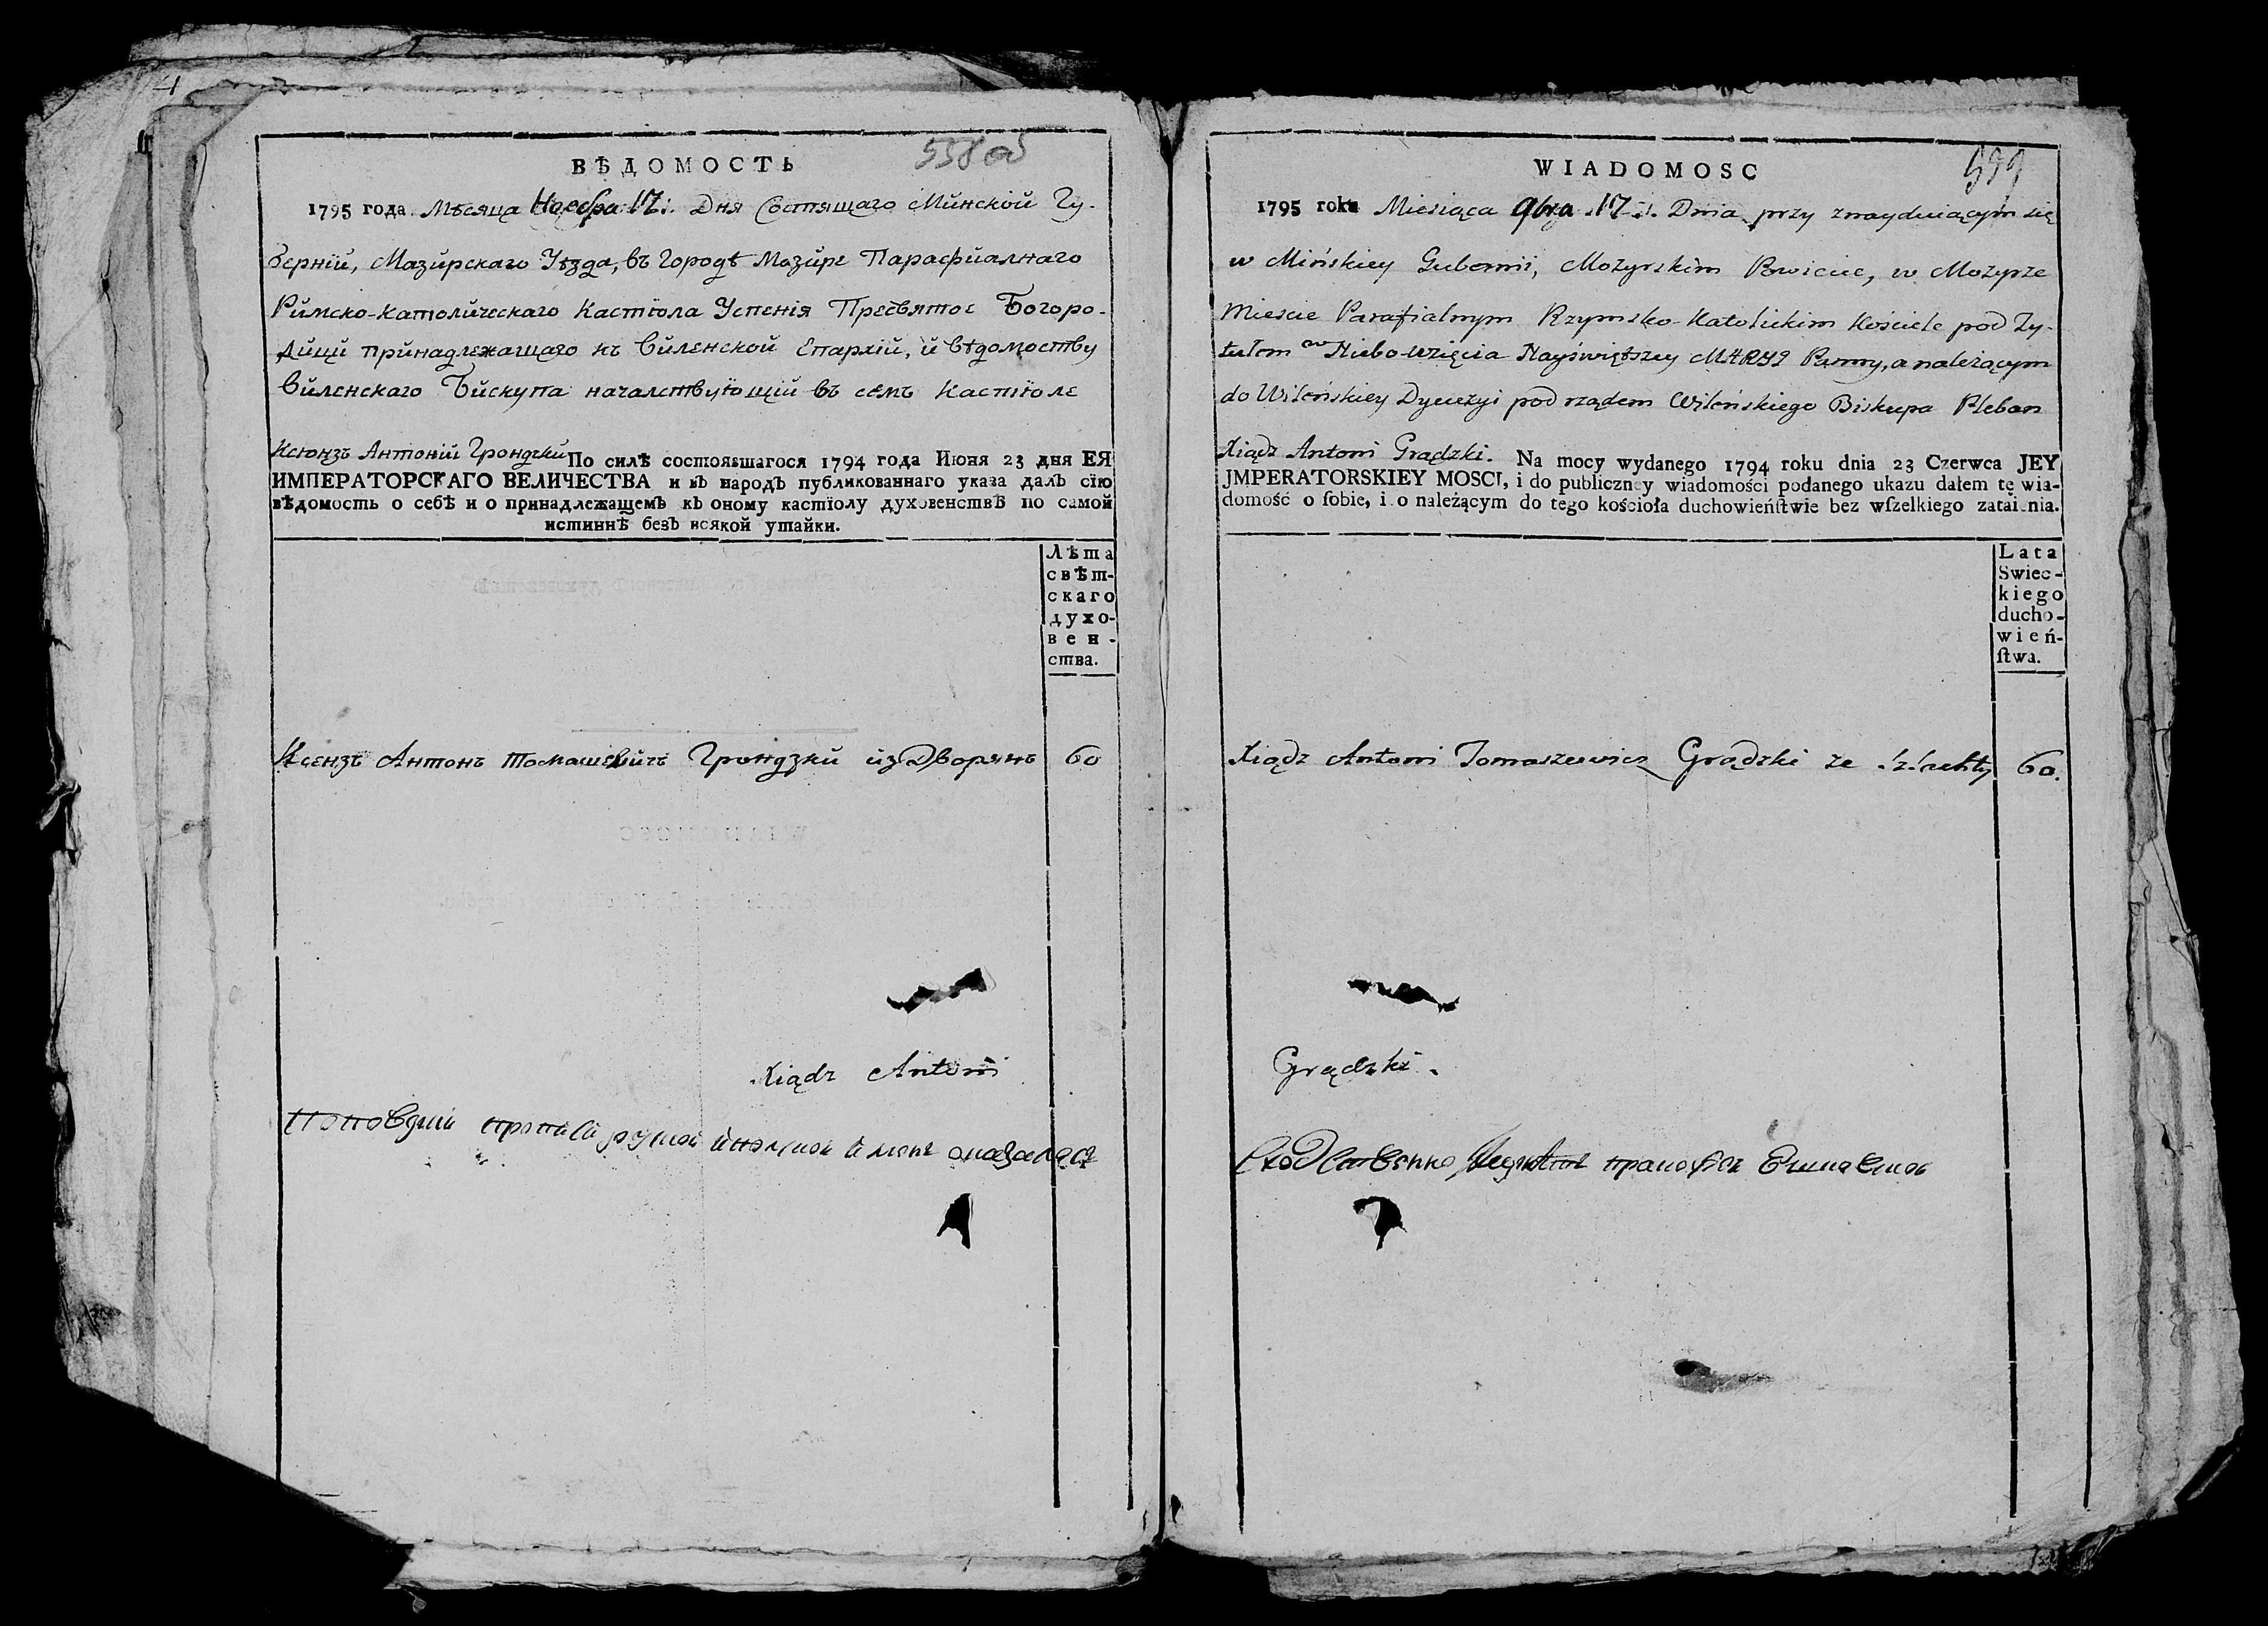 558об
ВѢДОМОСТЬ
1795 года. Мѣсяца Ноебра 17: Дня Состящаго Минской Гу-
бернїи, Мазирскаго Уѣзда, въ Городѣ Мазире Парафиалнаго
Римско-католическаго Кастїола Успенія Пресвятое Богоро-
дици принадлежащаго къ Виленской Епархїи, и вѣдомоству
Виленскаго Бискупа началствуїощїй въ семъ Кастїоле
Ксюнзъ Антонїй Грондзки По силѣ состоявшагося 1794 года Июня 23 дня ЕЯ
ИМПЕРАТОРСКАГО ВЕЛИЧЕСТВА и въ народъ публикованнаго указа далъ сїю
вѣдомость о себѣ и о принадлежащемъ къ оному кастїолу духовенствѣ по самой
истиннѣ безъ всякой утайки.
Лѣта
свѣт-
скаго
духо-
вен-
ства.
Ксензъ Антонъ Томашевичъ Грондзки изъ Дворянъ 60
Xiądz Antoni
599
WIADOMOSC
1795 roku Miesiąca 9bra 17 Dnia przy znayduiącym się
w Mińskiey Gubernii, Mozyrskim Powiecie, w Mozyrze
Mieście Parafialnym Rzymsko-Katolickim Kościele pod Ty-
tułem w Niebo-wzięcia Nayświętszey MARYI Panny, a należącym
do Wileńskiey Dyecezyi pod rządem Wileńskiego Biskupa Pleban
Xiądz Antoni Grądzki. Na mocy wydanego 1794 roku dnia 23 Czerwca JEY
JMPERATORSKIEY MOSCI, i do publiczney wiadomości podanego ukazu dałem tę wia-
domość o ſobie, i o należącym do tego kościoła duchowieńſtwie bez wſzelkiego zataienia.
Lata
Swiec-
kiego
ducho-
wień-
ſtwa.
Xiądz Antoni Tomaszewicz Grądzki ze szlachty 60.
Grądzki.